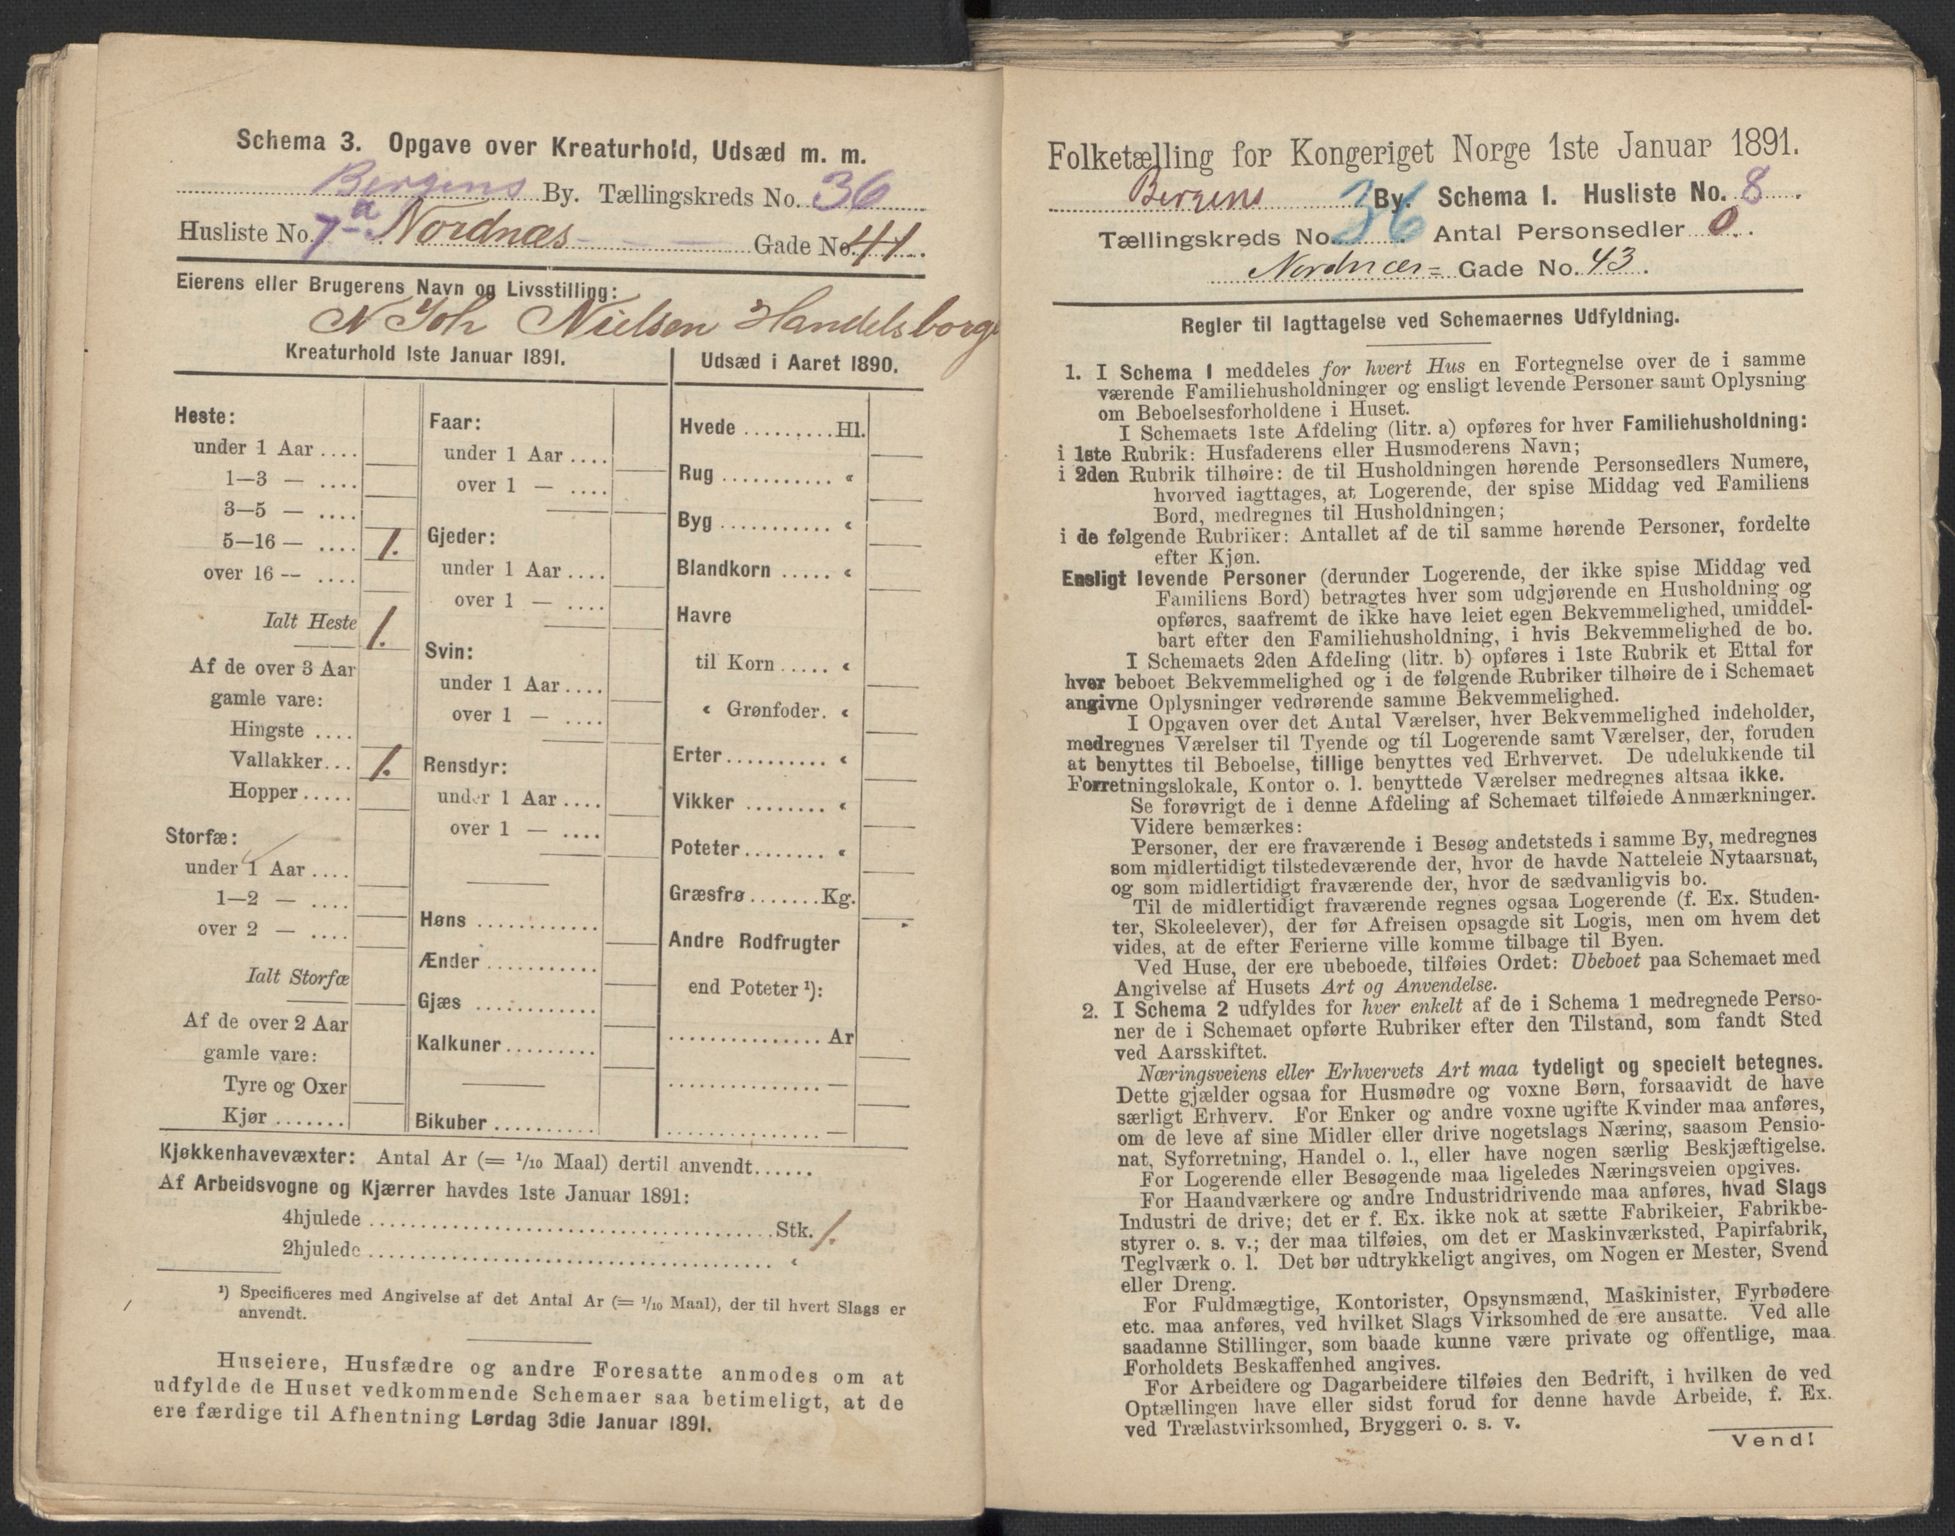 Schema 3. Opgave over Kreaturhold, Udsæd m. m.
Bergens By. Tællingskreds No. 36
Husliste No. 7a Nordnæs Gade No. 41
Eierens eller Brugerens Navn og Livsstilling:
N Joh Nielsen Handelsborg
Kreaturhold 1ste Januar 1891.
Heste:
under 1 Aar ....
1—3 — ....
3—5 — ....
5—16 — .... 1.
over 16 — ....
Ialt Heste 1.
Af de over 3 Aar
gamle vare:
Hingste ....
Vallakker... 1.
Hopper.....
Storfæ:
under 1 Aar ....
1—2 — ....
over 2 — ....
Ialt Storfæ
Af de over 2 Aar
gamle vare:
Tyre og Oxer
Kjør .......
Faar:
under 1 Aar ....
over 1 — ....
Gjeder:
under 1 Aar ....
over 1 — ....
Svin:
under 1 Aar ....
over 1 — ....
Rensdyr:
under 1 Aar ....
over 1 — ....
Høns ............
Ænder ...........
Gjæs ............
Kalkuner.........
Bikuber ..........
Udsæd i Aaret 1890.
Hvede .........Hl.
Rug ........... «
Byg ........... «
Blandkorn ..... «
Havre
til Korn ..... «
« Grønfoder. «
Erter.......... «
Vikker ........ «
Poteter........ «
Græsfrø.......Kg.
Andre Rodfrugter
end Poteter ¹):
............... Ar
............... —
............... —
Kjøkkenhavevæxter: Antal Ar (= 1/10 Maal) dertil anvendt......
Af Arbeidsvogne og Kjærrer havdes 1ste Januar 1891:
4hjulede ....................................Stk. 1.
2hjulede .................................... «
¹) Specificeres med Angivelse af det Antal Ar (= 1/10 Maal), der til hvert Slags er
anvendt.
Huseiere, Husfædre og andre Foresatte anmodes om at
udfylde de Huset vedkommende Schemaer saa betimeligt, at de
ere færdige til Afhentning Lørdag 3die Januar 1891.
Folketælling for Kongeriget Norge 1ste Januar 1891.
Bergens By. Schema I. Husliste No. 8
Tællingskreds No. 36 Antal Personsedler 0.
Nordnæs= Gade No. 43.
Regler til Iagttagelse ved Schemaernes Udfyldning.
1. I Schema 1 meddeles for hvert Hus en Fortegnelse over de i samme
værende Familiehusholdninger og ensligt levende Personer samt Oplysning
om Beboelsesforholdene i Huset.
I Schemaets 1ste Afdeling (litr. a) opføres for hver Familiehusholdning:
i 1ste Rubrik: Husfaderens eller Husmoderens Navn;
i 2den Rubrik tilhøire: de til Husholdningen hørende Personsedlers Numere,
hvorved iagttages, at Logerende, der spise Middag ved Familiens
Bord, medregnes til Husholdningen;
i de følgende Rubriker: Antallet af de til samme hørende Personer, fordelte
efter Kjøn.
Ensligt levende Personer (derunder Logerende, der ikke spise Middag ved
Familiens Bord) betragtes hver som udgjørende en Husholdning og
opføres, saafremt de ikke have leiet egen Bekvemmelighed, umiddel-
bart efter den Familiehusholdning, i hvis Bekvemmelighed de bo.
I Schemaets 2den Afdeling (litr. b) opføres i 1ste Rubrik et Ettal for
hver beboet Bekvemmelighed og i de følgende Rubriker tilhøire de i Schemaet
angivne Oplysninger vedrørende samme Bekvemmelighed.
I Opgaven over det Antal Værelser, hver Bekvemmelighed indeholder,
medregnes Værelser til Tyende og til Logerende samt Værelser, der, foruden
at benyttes til Beboelse, tillige benyttes ved Erhvervet. De udelukkende til
Forretningslokale, Kontor o. l. benyttede Værelser medregnes altsaa ikke.
Se forøvrigt de i denne Afdeling af Schemaet tilføiede Anmærkninger.
Videre bemærkes:
Personer, der ere fraværende i Besøg andetsteds i samme By, medregnes
som midlertidigt tilstedeværende der, hvor de havde Natteleie Nytaarsnat,
og som midlertidigt fraværende der, hvor de sædvanligvis bo.
Til de midlertidigt fraværende regnes ogsaa Logerende (f. Ex. Studen-
ter, Skoleelever), der før Afreisen opsagde sit Logis, men om hvem det
vides, at de efter Ferierne ville komme tilbage til Byen.
Ved Huse, der ere ubeboede, tilføies Ordet: Ubeboet paa Schemaet med
Angivelse af Husets Art og Anvendelse.
2. I Schema 2 udfyldes for hver enkelt af de i Schema 1 medregnede Perso-
ner de i Schemaet opførte Rubriker efter den Tilstand, som fandt Sted
ved Aarsskiftet.
Næringsveiens eller Erhvervets Art maa tydeligt og specielt betegnes.
Dette gjælder ogsaa for Husmødre og voxne Børn, forsaavidt de have
særligt Erhverv. For Enker og andre voxne ugifte Kvinder maa anføres,
om de leve af sine Midler eller drive nogetslags Næring, saasom Pensio-
nat, Syforretning, Handel o. l., eller have nogen særlig Beskjæftigelse.
For Logerende eller Besøgende maa ligeledes Næringsveien opgives.
For Haandværkere og andre Industridrivende maa anføres, hvad Slags
Industri de drive; det er f. Ex. ikke nok at sætte Fabrikeier, Fabrikbe-
styrer o. s. v.; der maa tilføies, om det er Maskinværksted, Papirfabrik,
Teglværk o. l. Det bør udtrykkeligt angives, om Nogen er Mester, Svend
eller Dreng.
For Fuldmægtige, Kontorister, Opsynsmænd, Maskinister, Fyrbødere
etc. maa anføres, ved hvilket Slags Virksomhed de ere ansatte. Ved alle
saadanne Stillinger, som baade kunne være private og offentlige, maa
Forholdets Beskaffenhed angives.
For Arbeidere og Dagarbeidere tilføies den Bedrift, i hvilken de ved
Optællingen have eller sidst forud for denne havde Arbeide, f. Ex.
ved Trælastvirksomhed, Bryggeri o. s. v.
Vend!